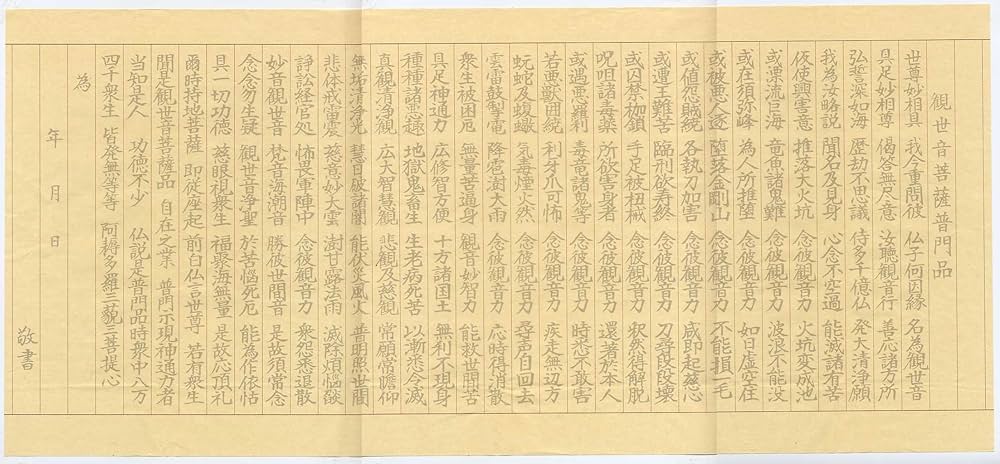 観世音菩薩普門品
世尊妙相具 我今重問彼 仏子何因縁 名為観世音
具足妙相尊 偈答無尽意 汝聴観音行 善応諸方所
弘誓深如海 歴劫不思議 侍多千億仏 発大清浄願
我為汝略説 聞名及見身 心念不空過 能滅諸有苦
仮使興害意 推落大火坑 念彼観音力 火坑変成池
或漂流巨海 竜魚諸鬼難 念彼観音力 波浪不能没
或在須弥峰 為人所推堕 念彼観音力 如日虚空住
或被悪人逐 堕落金剛山 念彼観音力 不能損一毛
或値怨賊繞 各執刀加害 念彼観音力 咸即起慈心
或遭王難苦 臨刑欲寿終 念彼観音力 刀尋段段壊
或囚禁枷鎖 手足被杻械 念彼観音力 釈然得解脱
呪咀諸毒薬 所欲害身者 念彼観音力 還著於本人
或遇悪羅刹 毒竜諸鬼等 念彼観音力 時悉不敢害
若悪獣囲繞 利牙爪可怖 念彼観音力 疾走無辺方
蚖蛇及蝮蠍 気毒煙火然 念彼観音力 尋声自回去
雲雷鼓掣電 降雹澍大雨 念彼観音力 応時得消散
衆生被困厄 無量苦逼身 観音妙智力 能救世間苦
具足神通力 広修智方便 十方諸国土 無刹不現身
種種諸悪趣 地獄鬼畜生 生老病死苦 以漸悉令滅
真観清浄観 広大智慧観 悲観及慈観 常願常瞻仰
無垢清浄光 慧日破諸闇 能伏災風火 普明照世間
悲体戒雷震 慈意妙大雲 澍甘露法雨 滅除煩悩燄
諍訟経官処 怖畏軍陣中 念彼観音力 衆怨悉退散
妙音観世音 梵音海潮音 勝彼世間音 是故須常念
念念勿生疑 観世音浄聖 於苦悩死厄 能為作依怙
具一切功徳 慈眼視衆生 福聚海無量 是故応頂礼
爾時持地菩薩 即従座起 前白仏言世尊 若有衆生
聞是観世音菩薩品 自在之業 普門示現神通力者
当知是人 功徳不少 仏説是普門品時衆中八万
四千衆生 皆発無等等 阿耨多羅三藐三菩提心
為
年 月 日
敬書